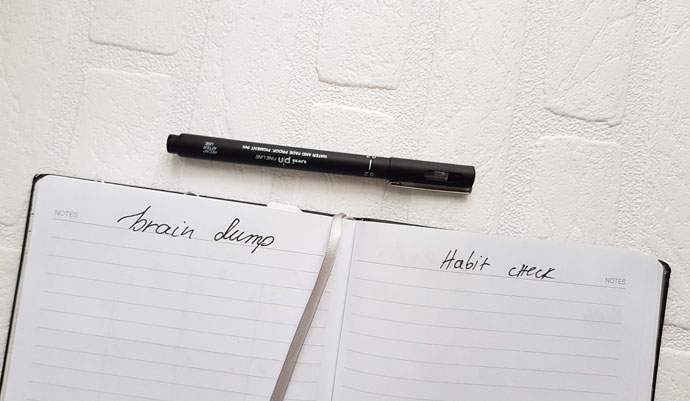 RECAP AFTER USE
uni pin FINE LINE
WATER AND FADE PROOF, PIGMENT INK
0.2
0.2
NOTES
brain dump
Habit check
NOTES